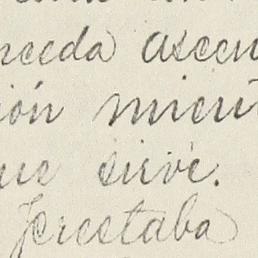 ceeda ascen
ión mient
ue sirve.
Prestaba